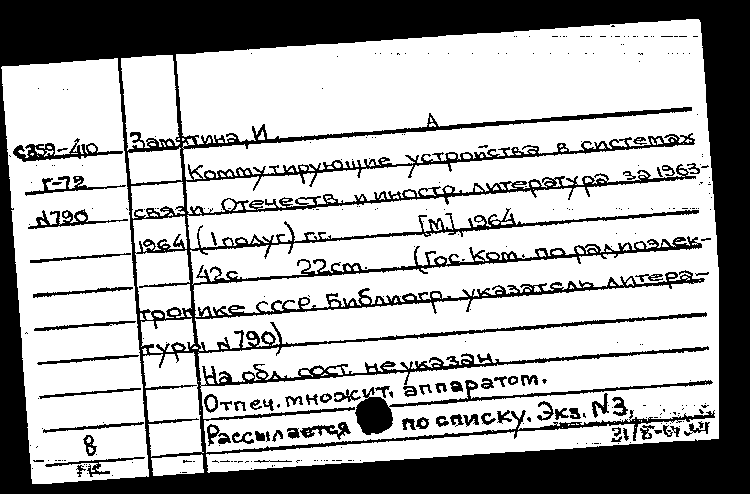 Замятина, И. А
с359-410
Коммутирующие устройства в системах
г-72
связи. Отечеств. и иностр. литература за 1963-
N790
1964 (I полуг) гг. [М], 1964.
42с. 22cm. (Гос. Ком. по радиоэлек-
тронике СССР. Библиогр. указатель литера-
туры N790)
На обл. сост. не указан.
Отпеч. множит. аппаратом.
Рассылается по списку. Экз. N3.
В
31/8-64